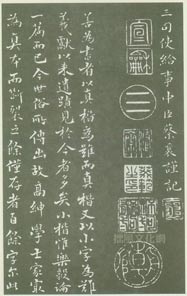 三司使給事中臣蔡襄謹記
宣龢
善為書者以真楷為難而真楷又以小字為難
羲獻以来遺蹟見於今者多矣小楷惟樂毅論
一篇而已今世俗所傳出故高紳學士家最
為真本而斷裂之餘僅存者百餘字爾此